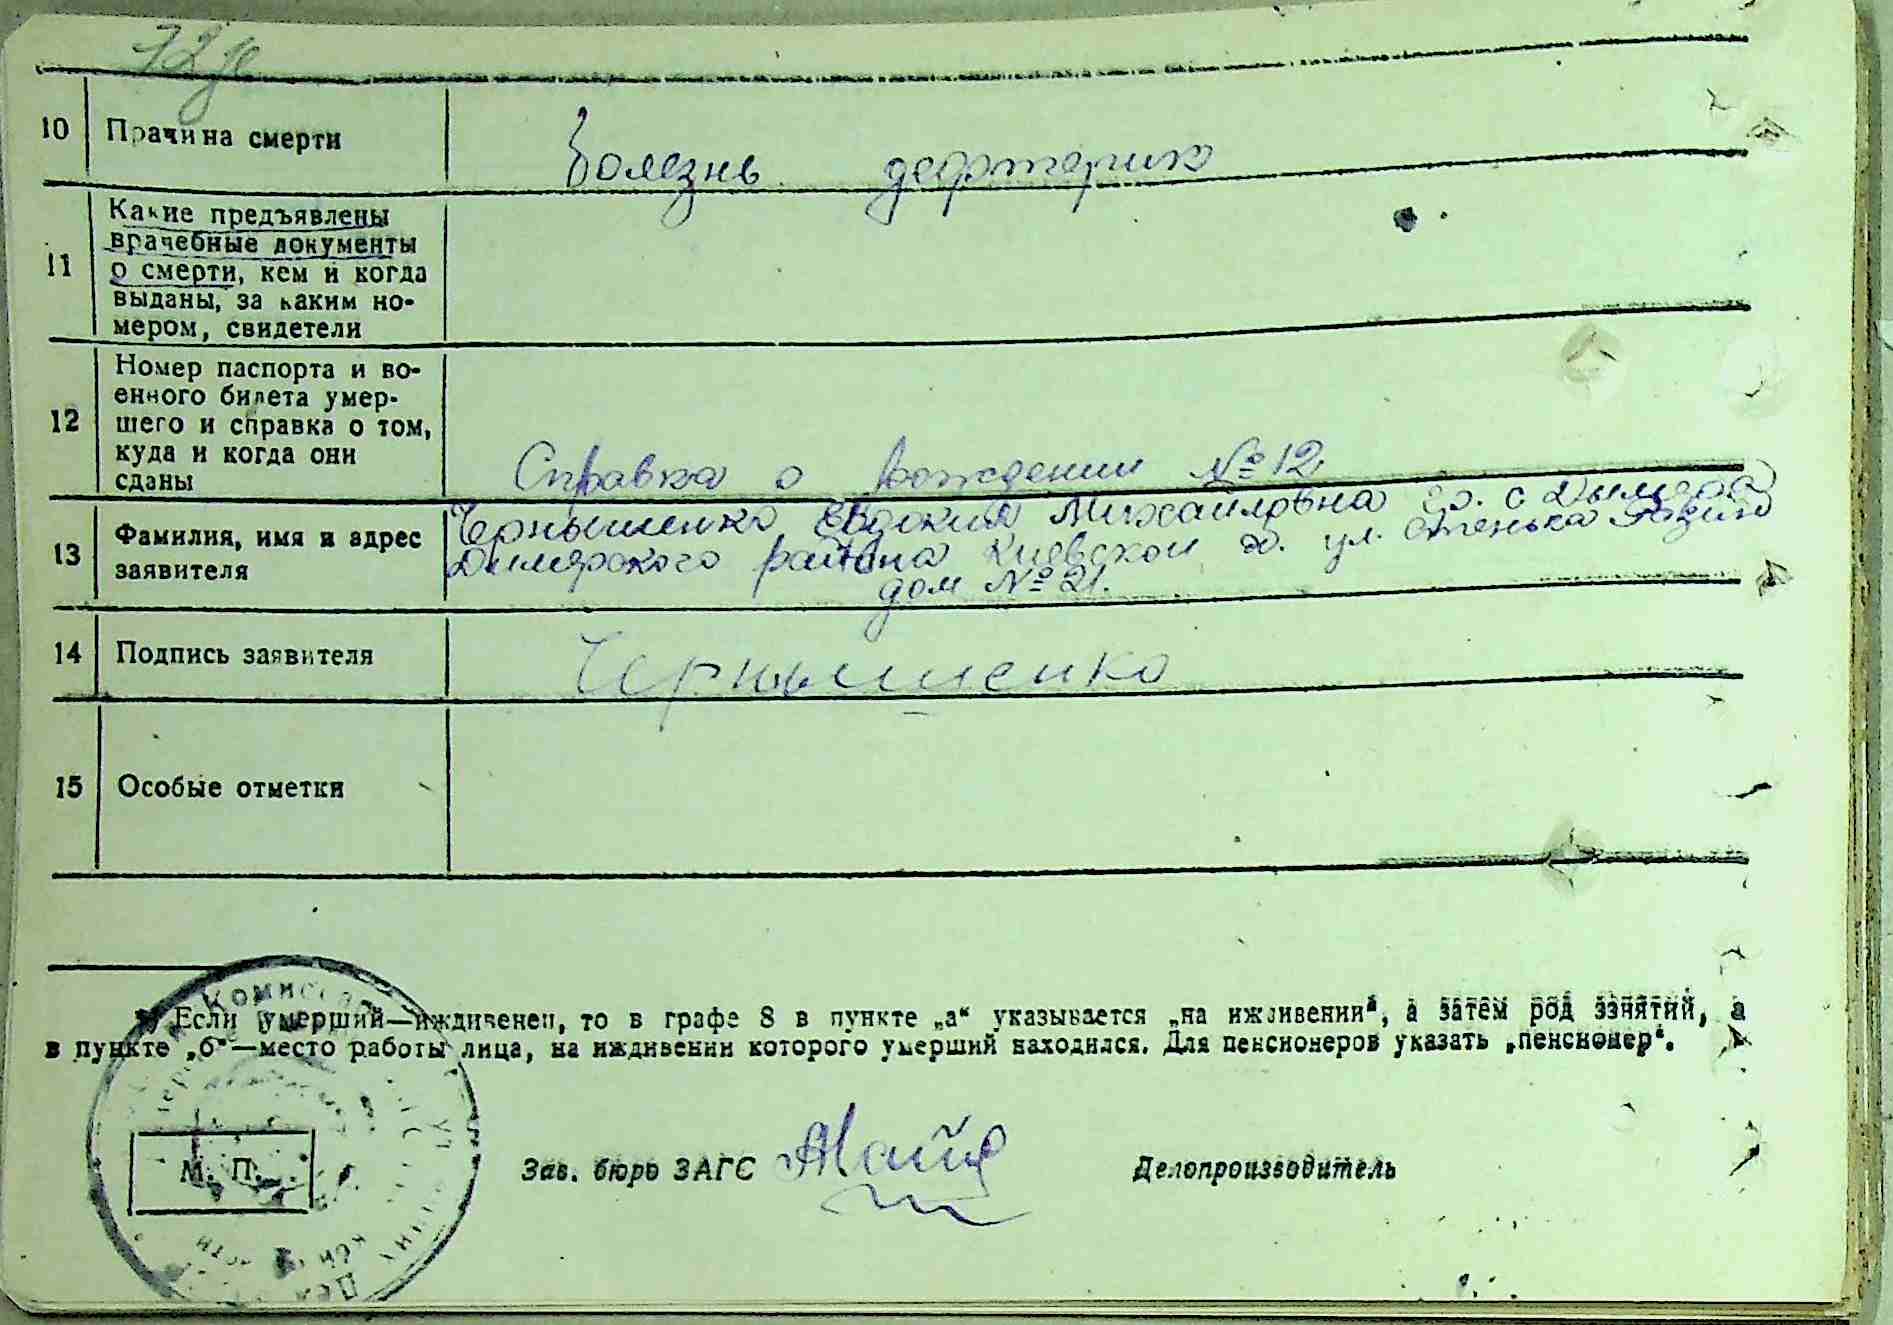 10 Причина смерти
Болезнь дефтерик
11 Какие предъявлены
врачебные документы
о смерти, кем и когда
выданы, за каким но-
мером, свидетели
12 Номер паспорта и во-
енного билета умер-
шего и справка о том,
куда и когда они
сданы
Справка о рождении № 12.
13 Фамилия, имя и адрес
заявителя
Чернышенко Евдокия Михайловна гр. с Дымера
Димерского района Киевской о. ул. Стенька Разина
дом № 21.
14 Подпись заявителя
Чернышенко
15 Особые отметки
Если умерший—иждивенец, то в графе 8 в пункте „а“ указывается „на иждивении“, а затем род занятий, а
в пункте „б“—место работы лица, на иждивении которого умерший находился. Для пенсионеров указать „пенсионер“.
Комисса
М. П.
Зав. бюро ЗАГС
Делопроизводитель